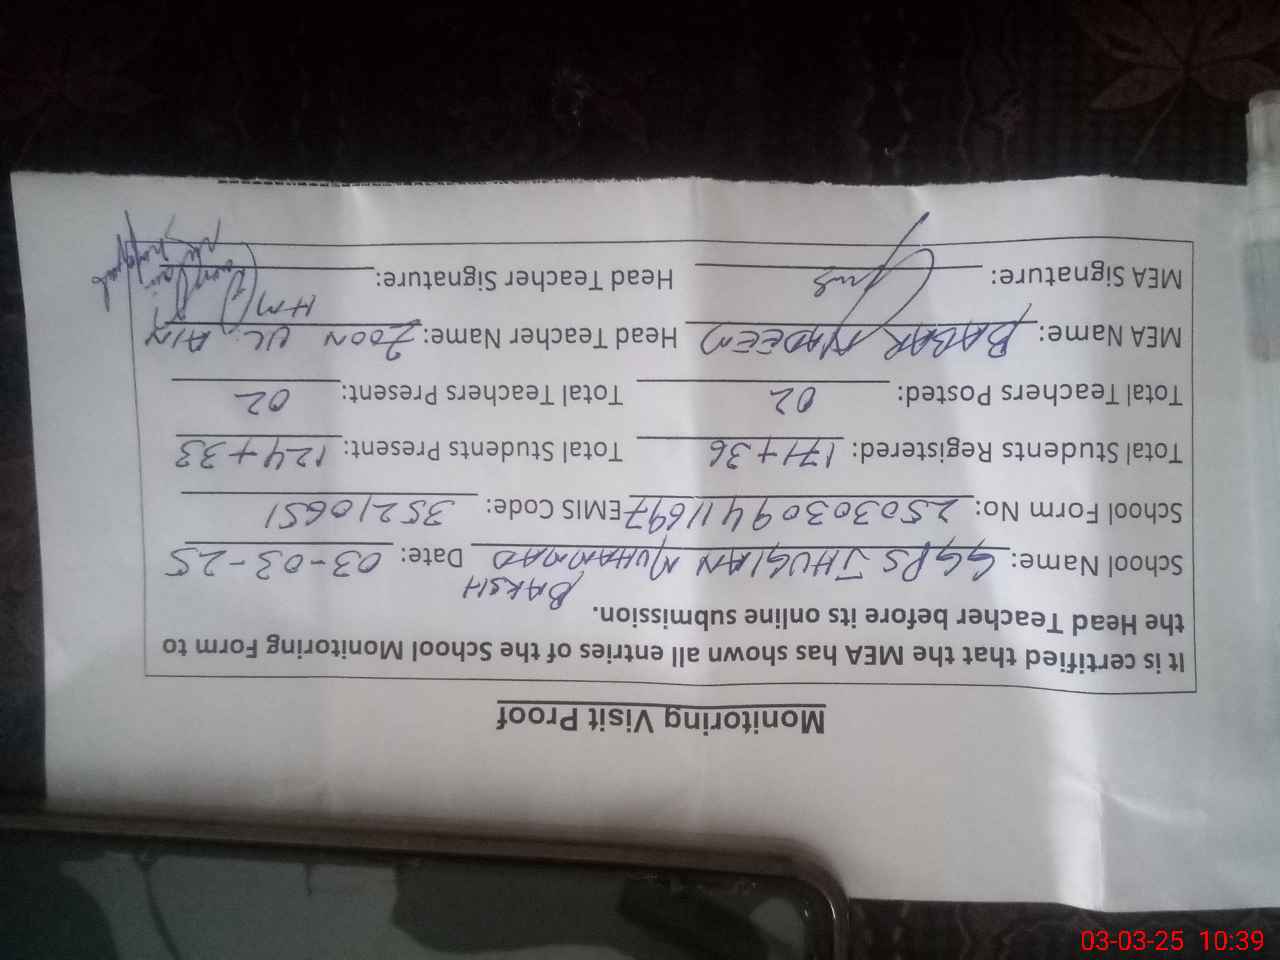 Monitoring Visit Proof
It is certified that the MEA has shown all entries of the School Monitoring Form to
the Head Teacher before its online submission.
BAKSH
School Name: GGPS JHUGIAN MUHAMMAD Date: 03-03-25
School Form No: 25030309411697 EMIS Code: 35210651
Total Students Registered: 171+36 Total Students Present: 124+33
Total Teachers Posted: 02 Total Teachers Present: 02
MEA Name: BABAR NADEEM Head Teacher Name: ZOON UL AIN
HM
MEA Signature: Head Teacher Signature:
03-03-25 10:39